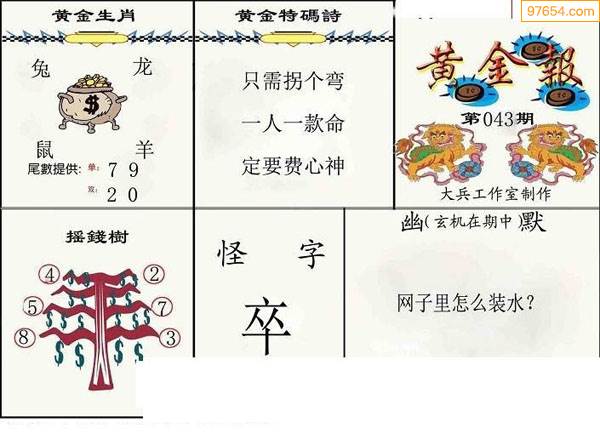 97654.com
黄金生肖
兔 龙
$
鼠 羊
尾數提供: 单: 7 9
双: 2 0
黄金特碼詩
只需拐个弯
一人一款命
定要费心神
黄金報
第043期
大兵工作室制作
摇錢樹
④ ②
⑤ ⑦
⑧ ③
$ $ $ $ $ $ $ $ $ $
怪 字
卒
幽(玄机在期中)默
网子里怎么装水?